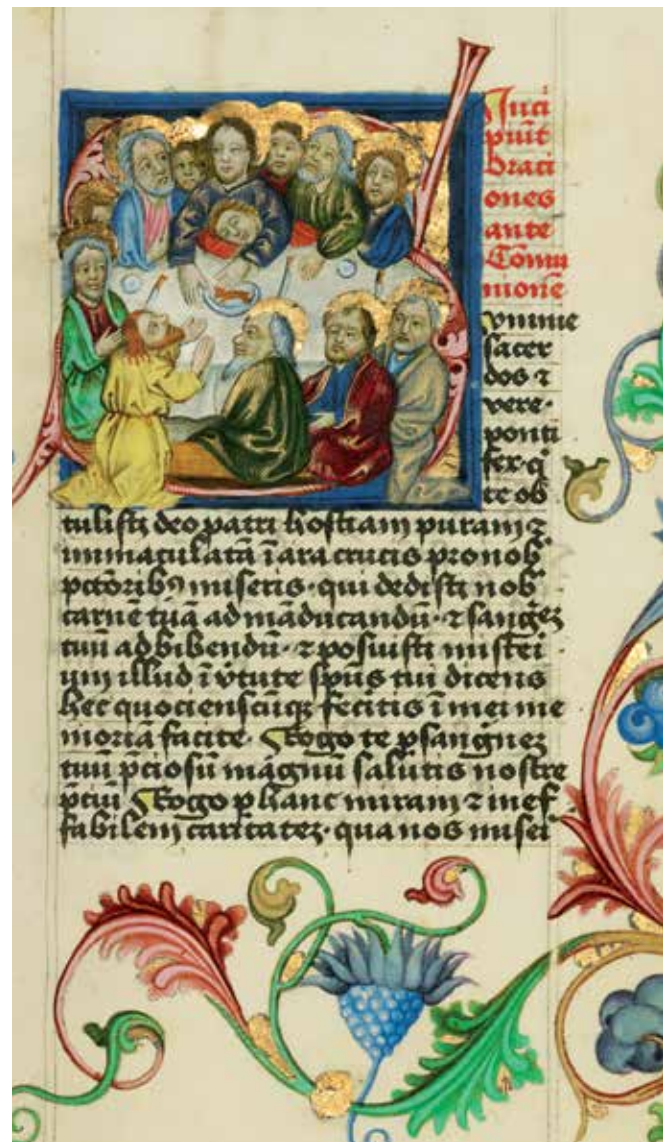 Inci
piūt
Oraci
ones
ante
Cōmu
nionē
ummе
sacer
dos ⁊
vere·
ponti
fex· q̄
te ob
tulisti deo patri hostiam puram ⁊
immaculatā ī ara crucis pro nob̄
pctōrib⁹ miseris· qui dedisti nob̄
carnē tuā ad māducandū· ⁊ sangēz
tuū ad bibendū· ⁊ posuisti mistei
um illud ī v̄tute sp̄us tui dicens
hec quociensc̄ūqꝫ fecitis ī mei me
moriā facite· Rogo te ꝑ sangnez
tuū p̄ciosū magnū salutis nostre
p̄ciū Rogo ꝑ hanc miram ⁊ inef
fabilem caritatez· qua nos misei